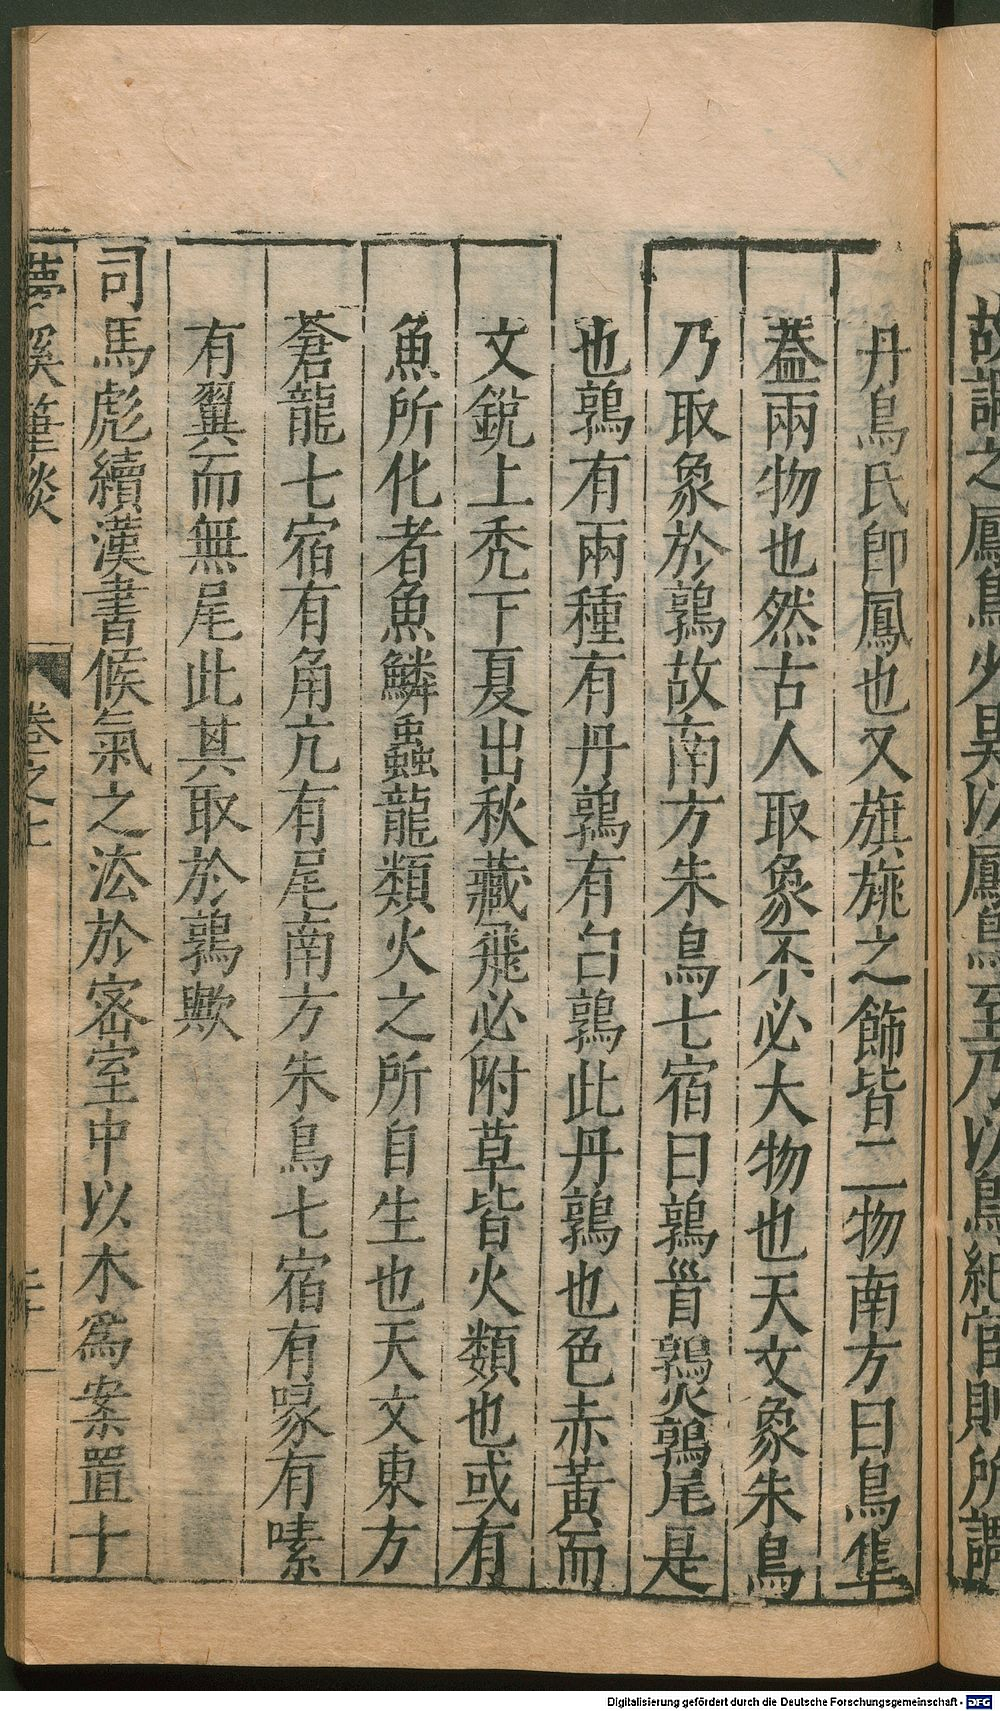 故謂之鳳鳥火
丹鳥氏卽鳳也又旗旐之飾皆二物南方曰鳥隼
葢兩物也然古人取象不必大物也天文象朱鳥
乃取象於鶉故南方朱鳥七宿曰鶉首鶉火鶉尾是
也鶉有兩種有丹鶉有白鶉此丹鶉也色赤黃而
文銳上禿下夏出秋藏飛必附草皆火類也或有
魚所化者魚鱗蟲龍類火之所自生也天文東方
蒼龍七宿有角亢有尾南方朱鳥七宿有喙有嗉
有翼而無尾此其取於鶉歟
司馬彪續漢書候氣之法於密室中以木爲案置十
夢溪筆談 卷之上
Digitalisierung gefördert durch die Deutsche Forschungsgemeinschaft - DFG